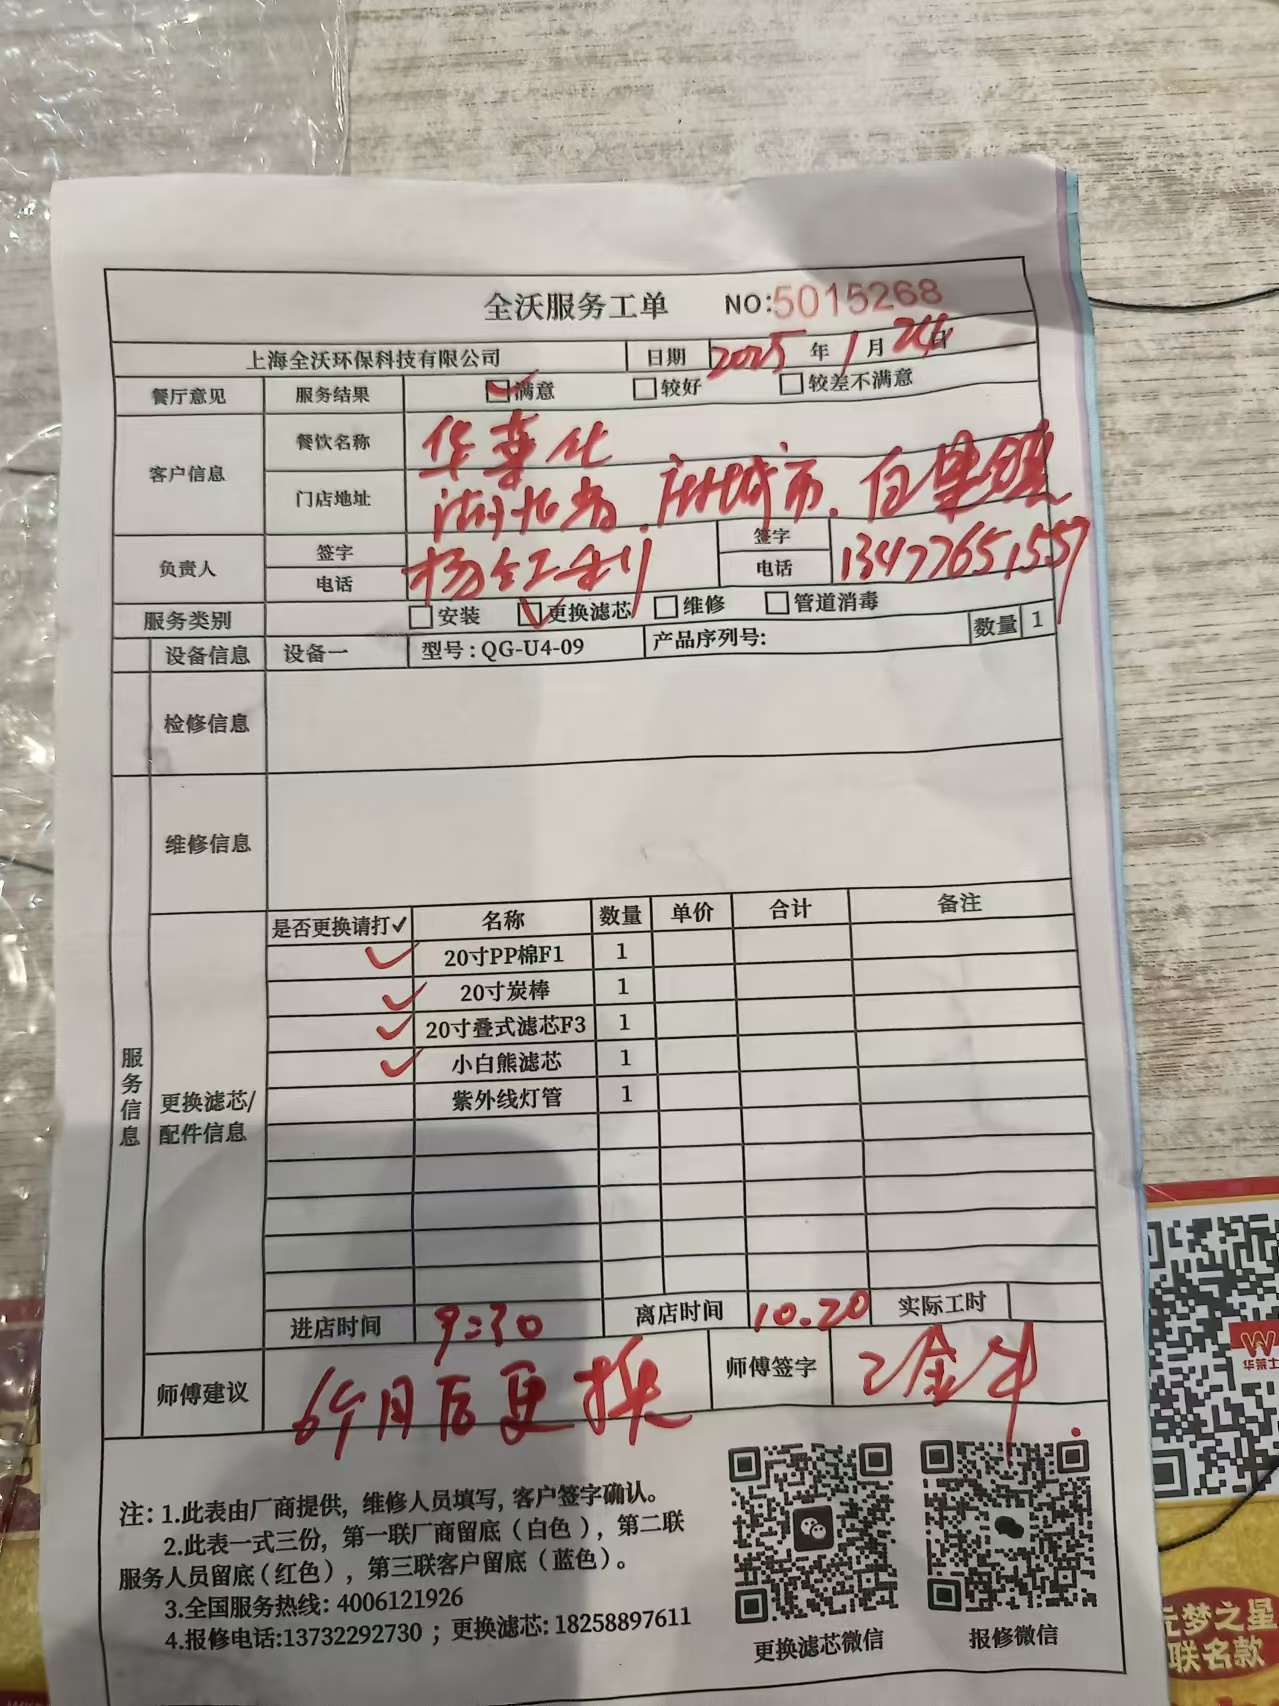 全沃服务工单 NO:5015268
上海全沃环保科技有限公司 日期 2025 年 1 月 26 日
餐厅意见 服务结果 满意 较好 较差不满意
客户信息 餐饮名称 华莱仕
门店地址 湖北省.应城市.
负责人 签字 杨红利 签字
电话 电话 13477651557
服务类别 安装 更换滤芯 维修 管道消毒
设备信息 设备一 型号:QG-U4-09 产品序列号: 数量 1
检修信息
维修信息
服务信息
更换滤芯/
配件信息
是否更换请打✓ 名称 数量 单价 合计 备注
✓ 20寸PP棉F1 1
✓ 20寸炭棒 1
✓ 20寸叠式滤芯F3 1
✓ 小白熊滤芯 1
紫外线灯管 1
进店时间 9:30 离店时间 10.20 实际工时
师傅建议 6个月后更换 师傅签字 金牛
注: 1.此表由厂商提供, 维修人员填写, 客户签字确认。
2.此表一式三份, 第一联厂商留底(白色), 第二联
服务人员留底(红色), 第三联客户留底(蓝色)。
3.全国服务热线: 4006121926
4.报修电话:13732292730 ; 更换滤芯: 18258897611
更换滤芯微信 报修微信
华莱士
元梦之星
联名款